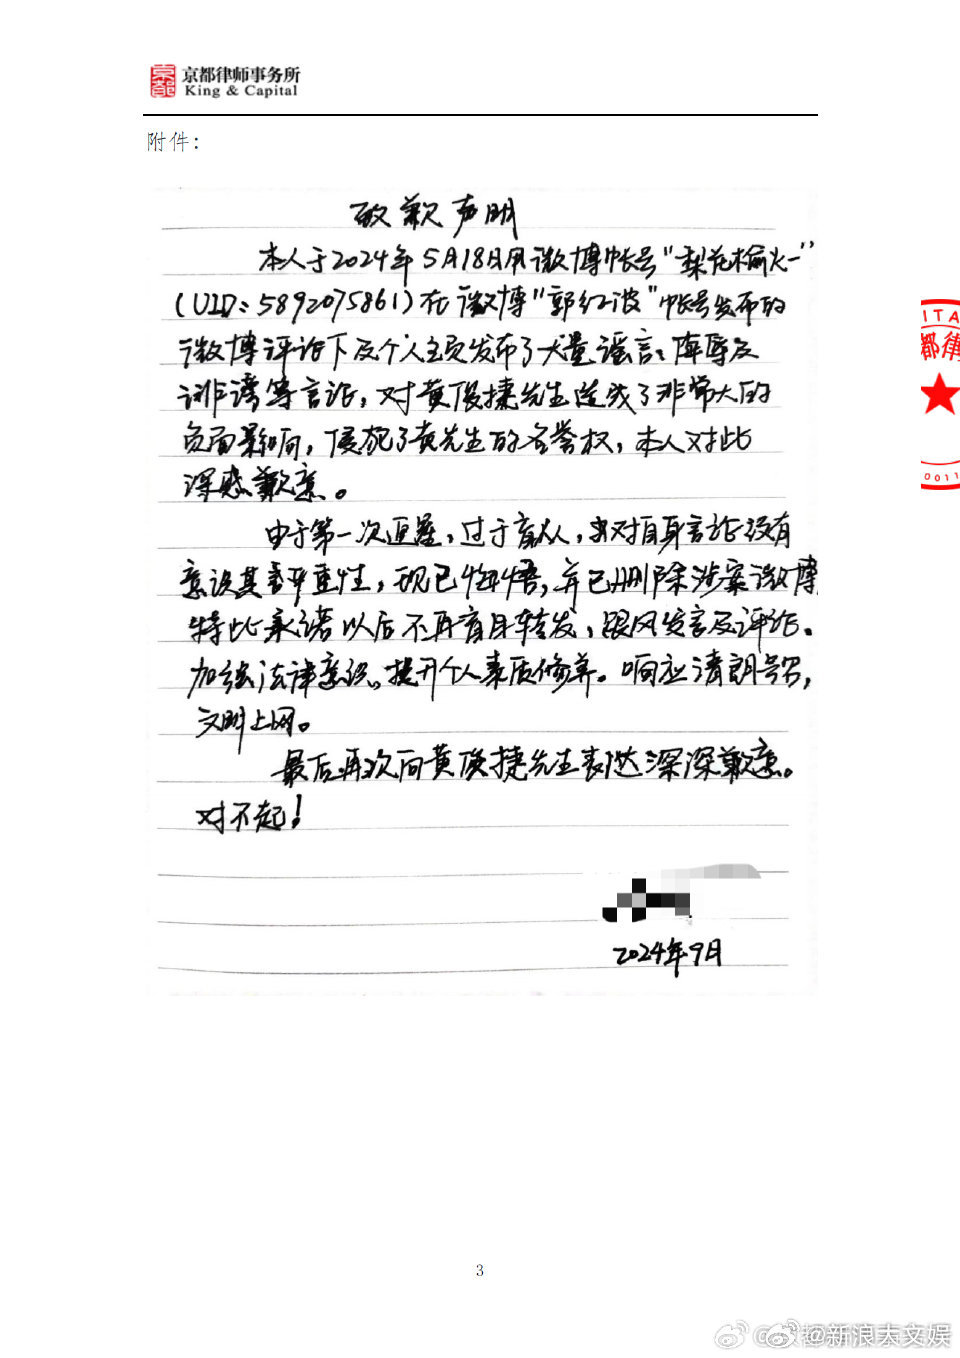 京都律师事务所
King & Capital
附件：
致歉声明
本人于2024年5月18日用微博帐号“梨花榆火一”
（UID：5892075861）在微博“郭红波”帐号发布的
微博评论下及个人主页发布了大量谣言、侮辱及
诽谤等言论，对黄俊捷先生造成了非常大的
负面影响，侵犯了黄先生的名誉权，本人对此
深感歉意。
由于第一次追星，过于盲从，对自身言论没有
意识其严重性，现已悔悟，并已删除涉案微博，
特此承诺以后不再盲目转发，跟风发言及评论。
加强法律意识，提升个人素质修养。响应清朗号召，
文明上网。
最后再次向黄俊捷先生表达深深歉意。
对不起！
2024年9月
ITA
都律
0011
3
@新浪大文娱